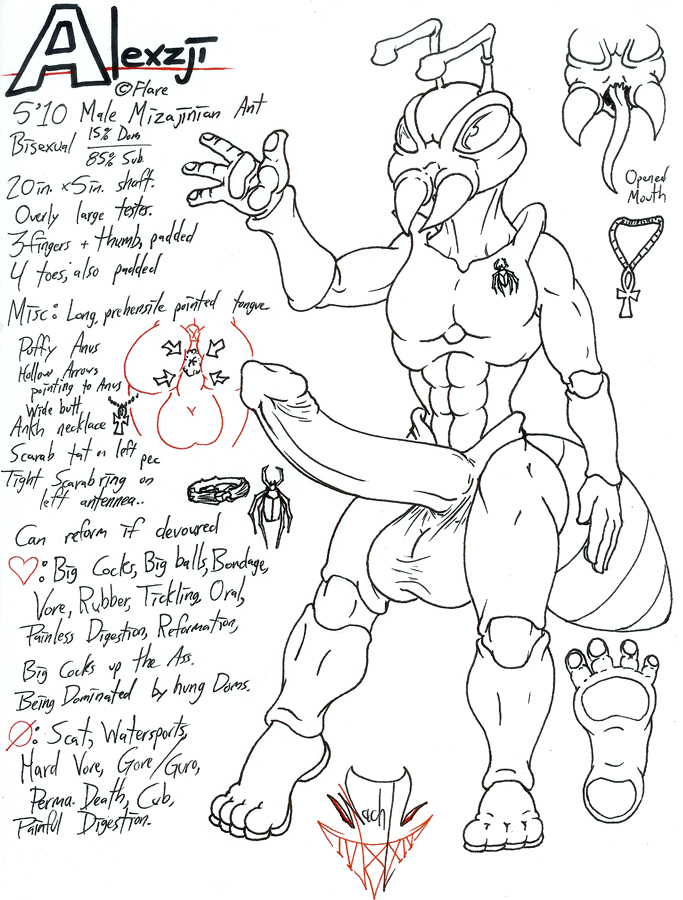 Alexzji
©Flare
5'10 Male Mizajinian Ant
Bisexual 15% Dom
85% Sub.
20in. x 5in. shaft.
Overly large testes.
3 fingers + thumb, padded
4 toes; also padded
Misc: Long, prehensile pointed tongue
Puffy Anus
Hollow Arrows
pointing to Anus
Wide butt
Ankh necklace
Scarab tat on left
pec
Tight Scarab ring on
left antennea..
Can reform if devoured
♡: Big Cocks, Big balls, Bondage,
Vore, Rubber, Tickling, Oral,
Painless Digestion, Reformation,
Big Cocks up the Ass.
Being Dominated by hung Doms.
Ø: Scat, Watersports,
Hard Vore, Gore/Guro,
Perma. Death, Cub,
Painful Digestion.
Opened
Mouth
Mach